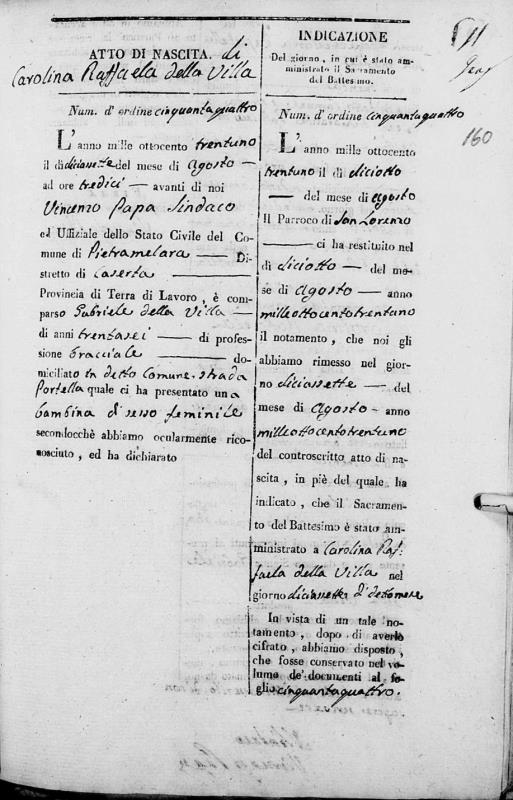 ATTO DI NASCITA. di
Carolina Raffaela della Villa
Num. d' ordine cinquantaquattro
L'anno mille ottocento trentuno
il di diciassette del mese di Agosto —
ad ore tredici — avanti di noi
Vincenzo Papa Sindaco
ed Uffiziale dello Stato Civile del Co-
mune di Pietramelara — Di-
stretto di Caserta —
Provincia di Terra di Lavoro, è com-
parso Gabriele della Villa —
di anni trentasei — di profes-
sione bracciale — do-
miciliato in detto Comune strada
Portella quale ci ha presentato una
bambina di sesso feminile
secondocchè abbiamo ocularmente rico-
nosciuto, ed ha dichiarato
INDICAZIONE
Del giorno, in cui è stato am-
ministrato il Sacramento
del Battesimo.
Num. d'ordine cinquantaquattro
L'anno mille ottocento
trentuno il di diciotto
— del mese di Agosto
Il Parroco di San Lorenzo
— ci ha restituito nel
di diciotto — del me-
se di Agosto — anno
milleottocentotrentuno
il notamento, che noi gli
abbiamo rimesso nel gior-
no diciassette — del
mese di Agosto — anno
milleottocentotrentuno
del controscritto atto di na-
scita, in piè del quale ha
indicato, che il Sacramen-
to del Battesimo è stato am-
ministrato a Carolina Raf-
faela della Villa nel
giorno diciassette di detto mese
In vista di un tale no-
tamento, dopo di averlo
cifrato, abbiamo disposto,
che fosse conservato nel vo-
lume de' documenti al fo-
glio cinquantaquattro.
160